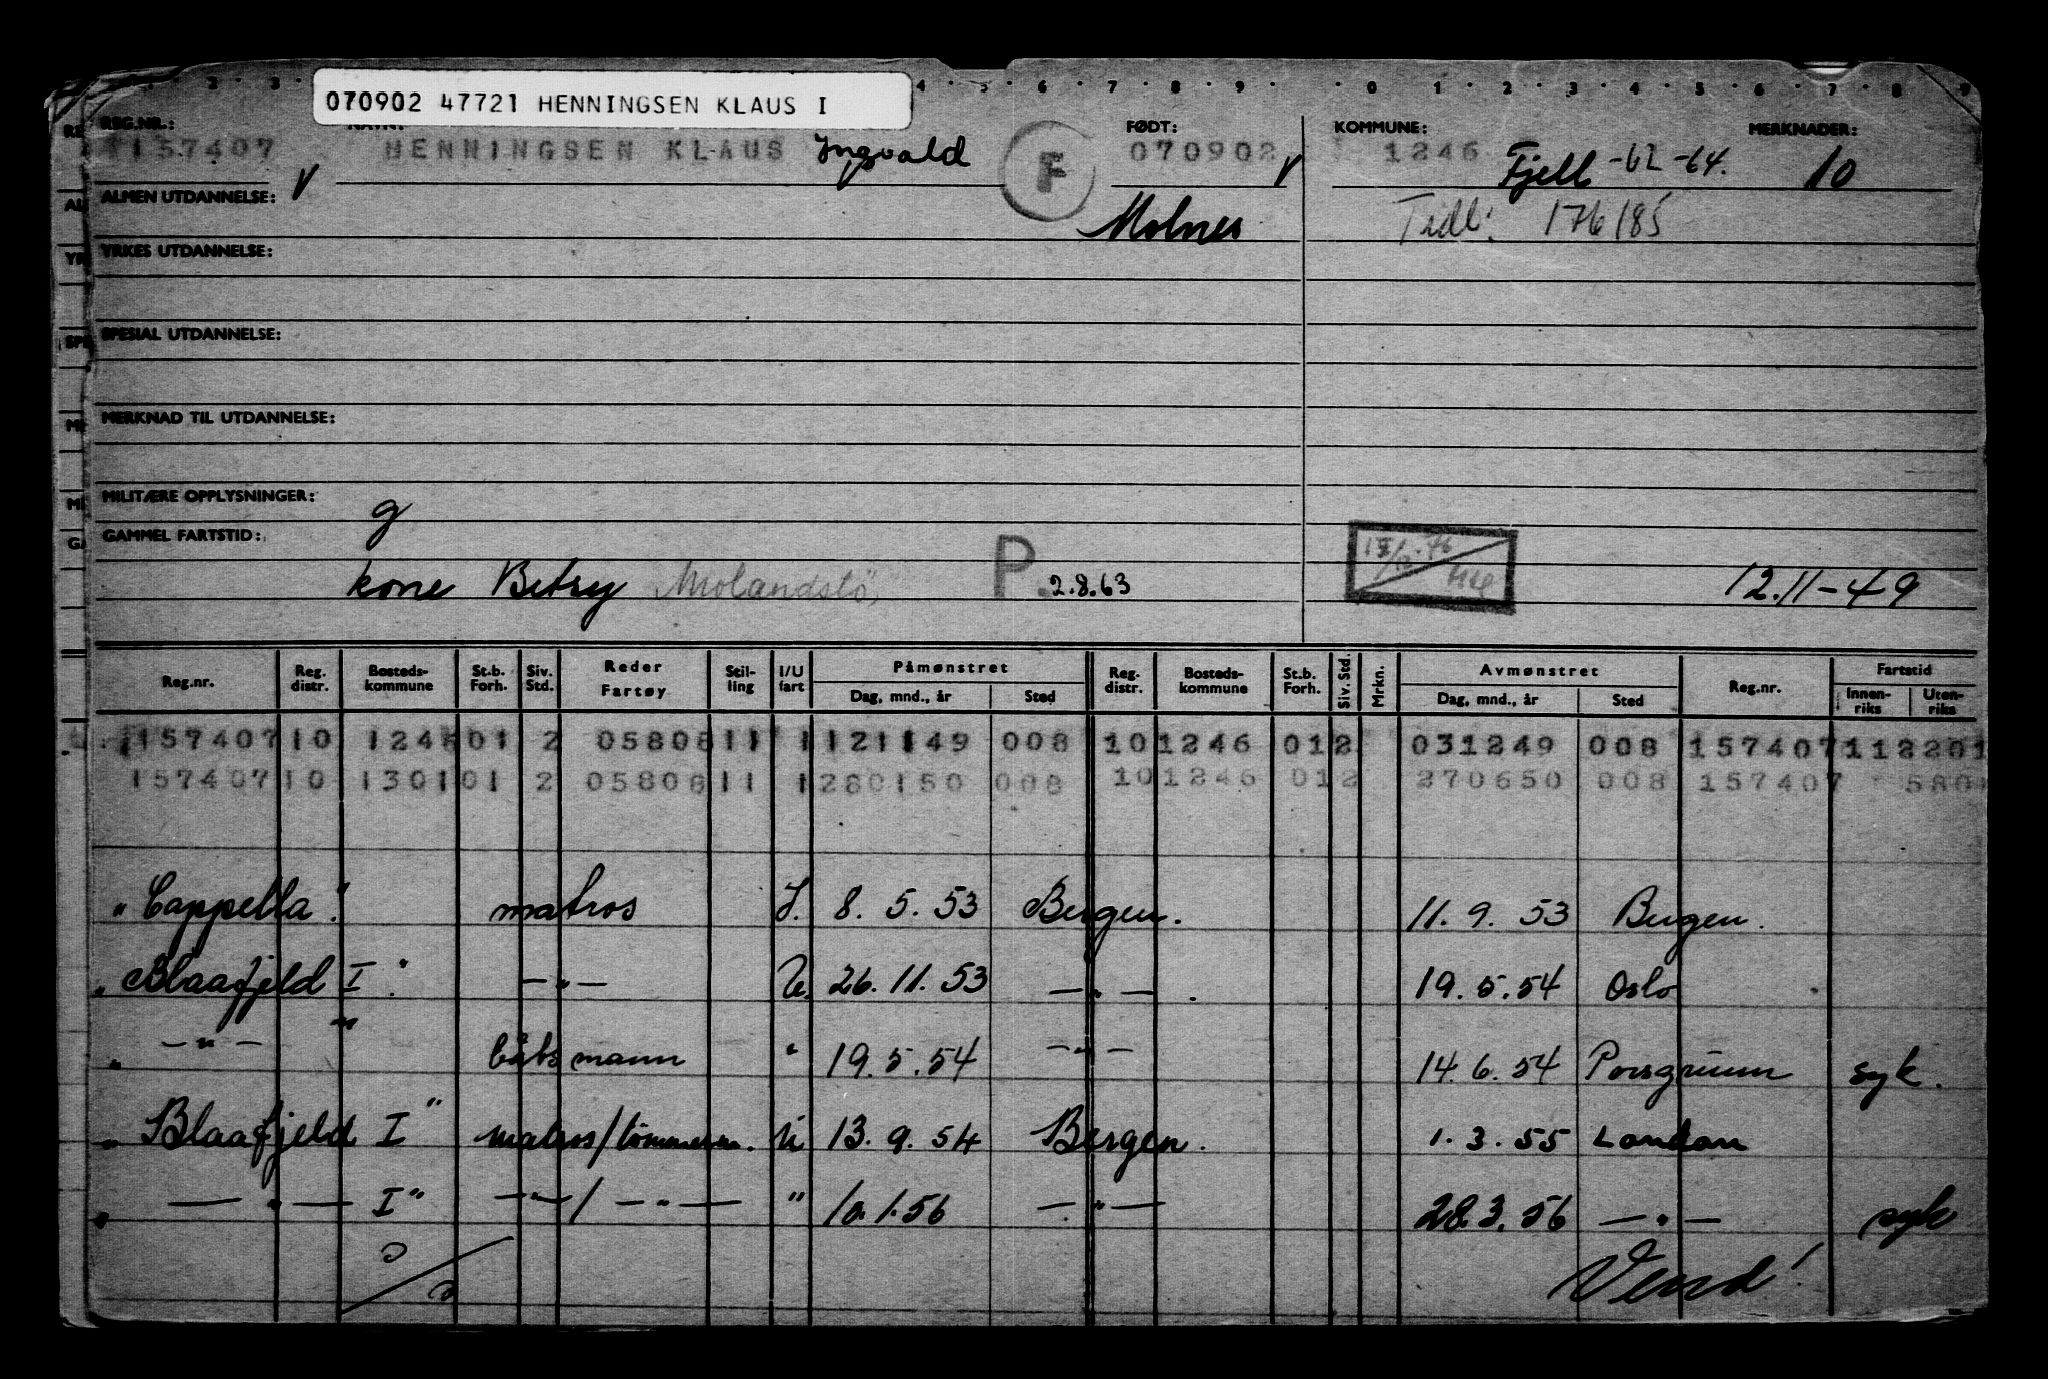 070902 47721 HENNINGSEN KLAUS I
REG.NR.: NAVN: FØDT: KOMMUNE: MERKNADER:
157407 HENNINGSEN KLAUS Ingvald F 070902 1246 Fjell -62 -64. 10
ALMEN UTDANNELSE: V Molnes Tidl: 176185
YRKES UTDANNELSE:
SPESIAL UTDANNELSE:
MERKNAD TIL UTDANNELSE:
MILITÆRE OPPLYSNINGER: g
GAMMEL FARTSTID:
kone Betsy P 2.8.63 12.11-49
Reg.nr. Reg. distr. Bosteds-kommune St.b. Forh. Siv. Std. Reder Fartøy Stil-ling I/U fart Påmønstret Dag, mnd., år Sted Reg. distr. Bosteds-kommune St.b. Forh. Siv. Std. Mrkn. Avmønstret Dag, mnd., år Sted Reg.nr. Fartstid Innen-riks Uten-riks
157407 10 124601 2 058081 1 1 121149 008 10 1246 012 031249 008 157407 112201
157407 10 130101 2 058081 1 1 280150 008 10 1246 012 270650 008 157407 580
"Cappella." matros I. 8. 5. 53 Bergen. 11. 9. 53 Bergen.
"Blaafjeld I". —"— U. 26. 11. 53 —"—. 19. 5. 54 Oslo
" —"— " båtsmann " 19. 5. 54 —"— 14. 6. 54 Porsgrunn syk.
"Blaafjeld I" matros/tømmerm. U 13. 9. 54 Bergen. 1. 3. 55 London
" —"— I" —"—/—"— " 10.1.56 —"— 28.3.56 —"— syk
Vend!